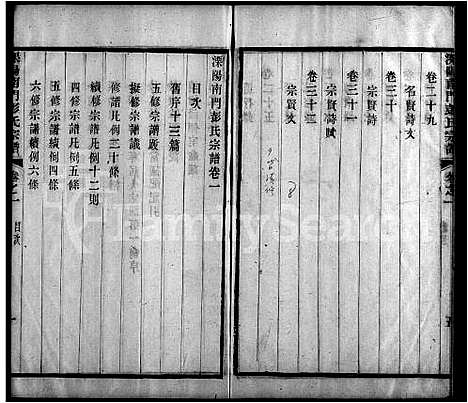 卷二十九
名賢詩文
卷三十
宗賢詩
卷三十一
宗賢詩賦
卷三十二
宗賢文
8
溧陽南門彭氏宗譜卷一
目次
舊序十三篇
五修宗譜跋
擬修宗譜議
修譜凡例三十條
續修宗譜凡例十二則
四修宗譜凡例五條
五修宗譜續例六條
六修宗譜續例六條
溧陽南門彭氏宗譜
卷之一
目次
一
FamilySearch